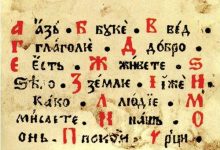 А азъ · Б буке · В вед
Г глаголіе · Д добро
Е есть · Ж живете ·
ѕѣло · З земле · И иже ·
како · людїе · М
мислете · нашъ · О
онь · П покои · рци ·